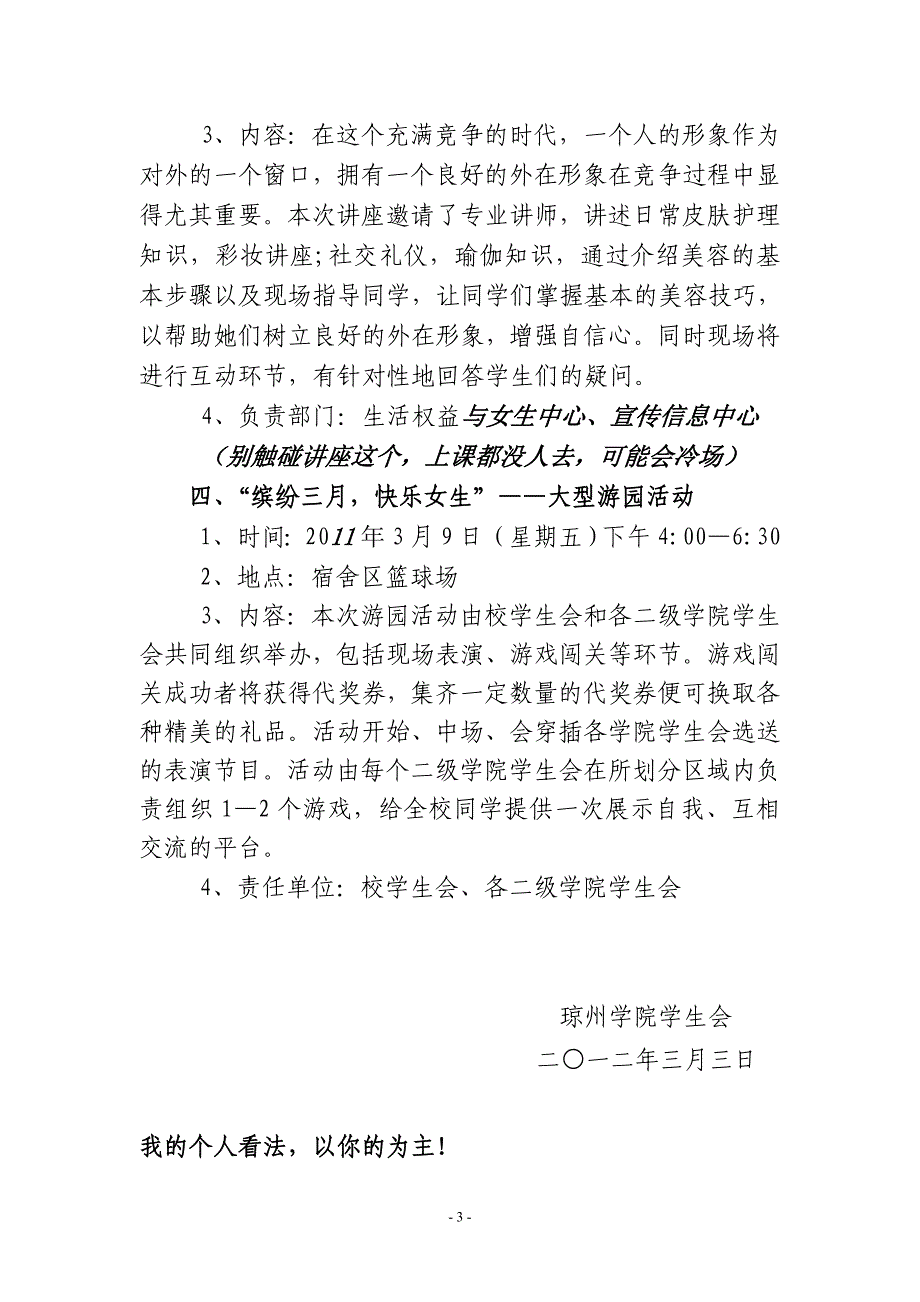 3、内容：在这个充满竞争的时代，一个人的形象作为
对外的一个窗口，拥有一个良好的外在形象在竞争过程中显
得尤其重要。本次讲座邀请了专业讲师，讲述日常皮肤护理
知识，彩妆讲座;社交礼仪，瑜伽知识，通过介绍美容的基
本步骤以及现场指导同学，让同学们掌握基本的美容技巧，
以帮助她们树立良好的外在形象，增强自信心。同时现场将
进行互动环节，有针对性地回答学生们的疑问。
4、负责部门：生活权益与女生中心、宣传信息中心
（别触碰讲座这个，上课都没人去，可能会冷场）
四、“缤纷三月，快乐女生”——大型游园活动
1、时间：2011年3月9日（星期五）下午4:00—6:30
2、地点：宿舍区篮球场
3、内容：本次游园活动由校学生会和各二级学院学生
会共同组织举办，包括现场表演、游戏闯关等环节。游戏闯
关成功者将获得代奖券，集齐一定数量的代奖券便可换取各
种精美的礼品。活动开始、中场、会穿插各学院学生会选送
的表演节目。活动由每个二级学院学生会在所划分区域内负
责组织1—2个游戏，给全校同学提供一次展示自我、互相
交流的平台。
4、责任单位：校学生会、各二级学院学生会
琼州学院学生会
二〇一二年三月三日
我的个人看法，以你的为主！
- 3 -